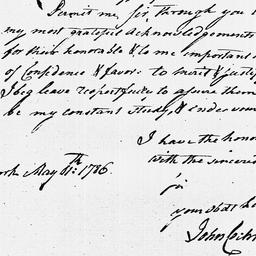 Permit me, Sir, through you t
my most grateful Acknowledgements
for their honorable & to me important
of Confidence & favor to merit & justify
I beg leave respectfully to assure them
be my constant Study, & endeavour
I have the honor
with the sincere
Sir
your obdt h
ork May 11th: 1786
John Coch